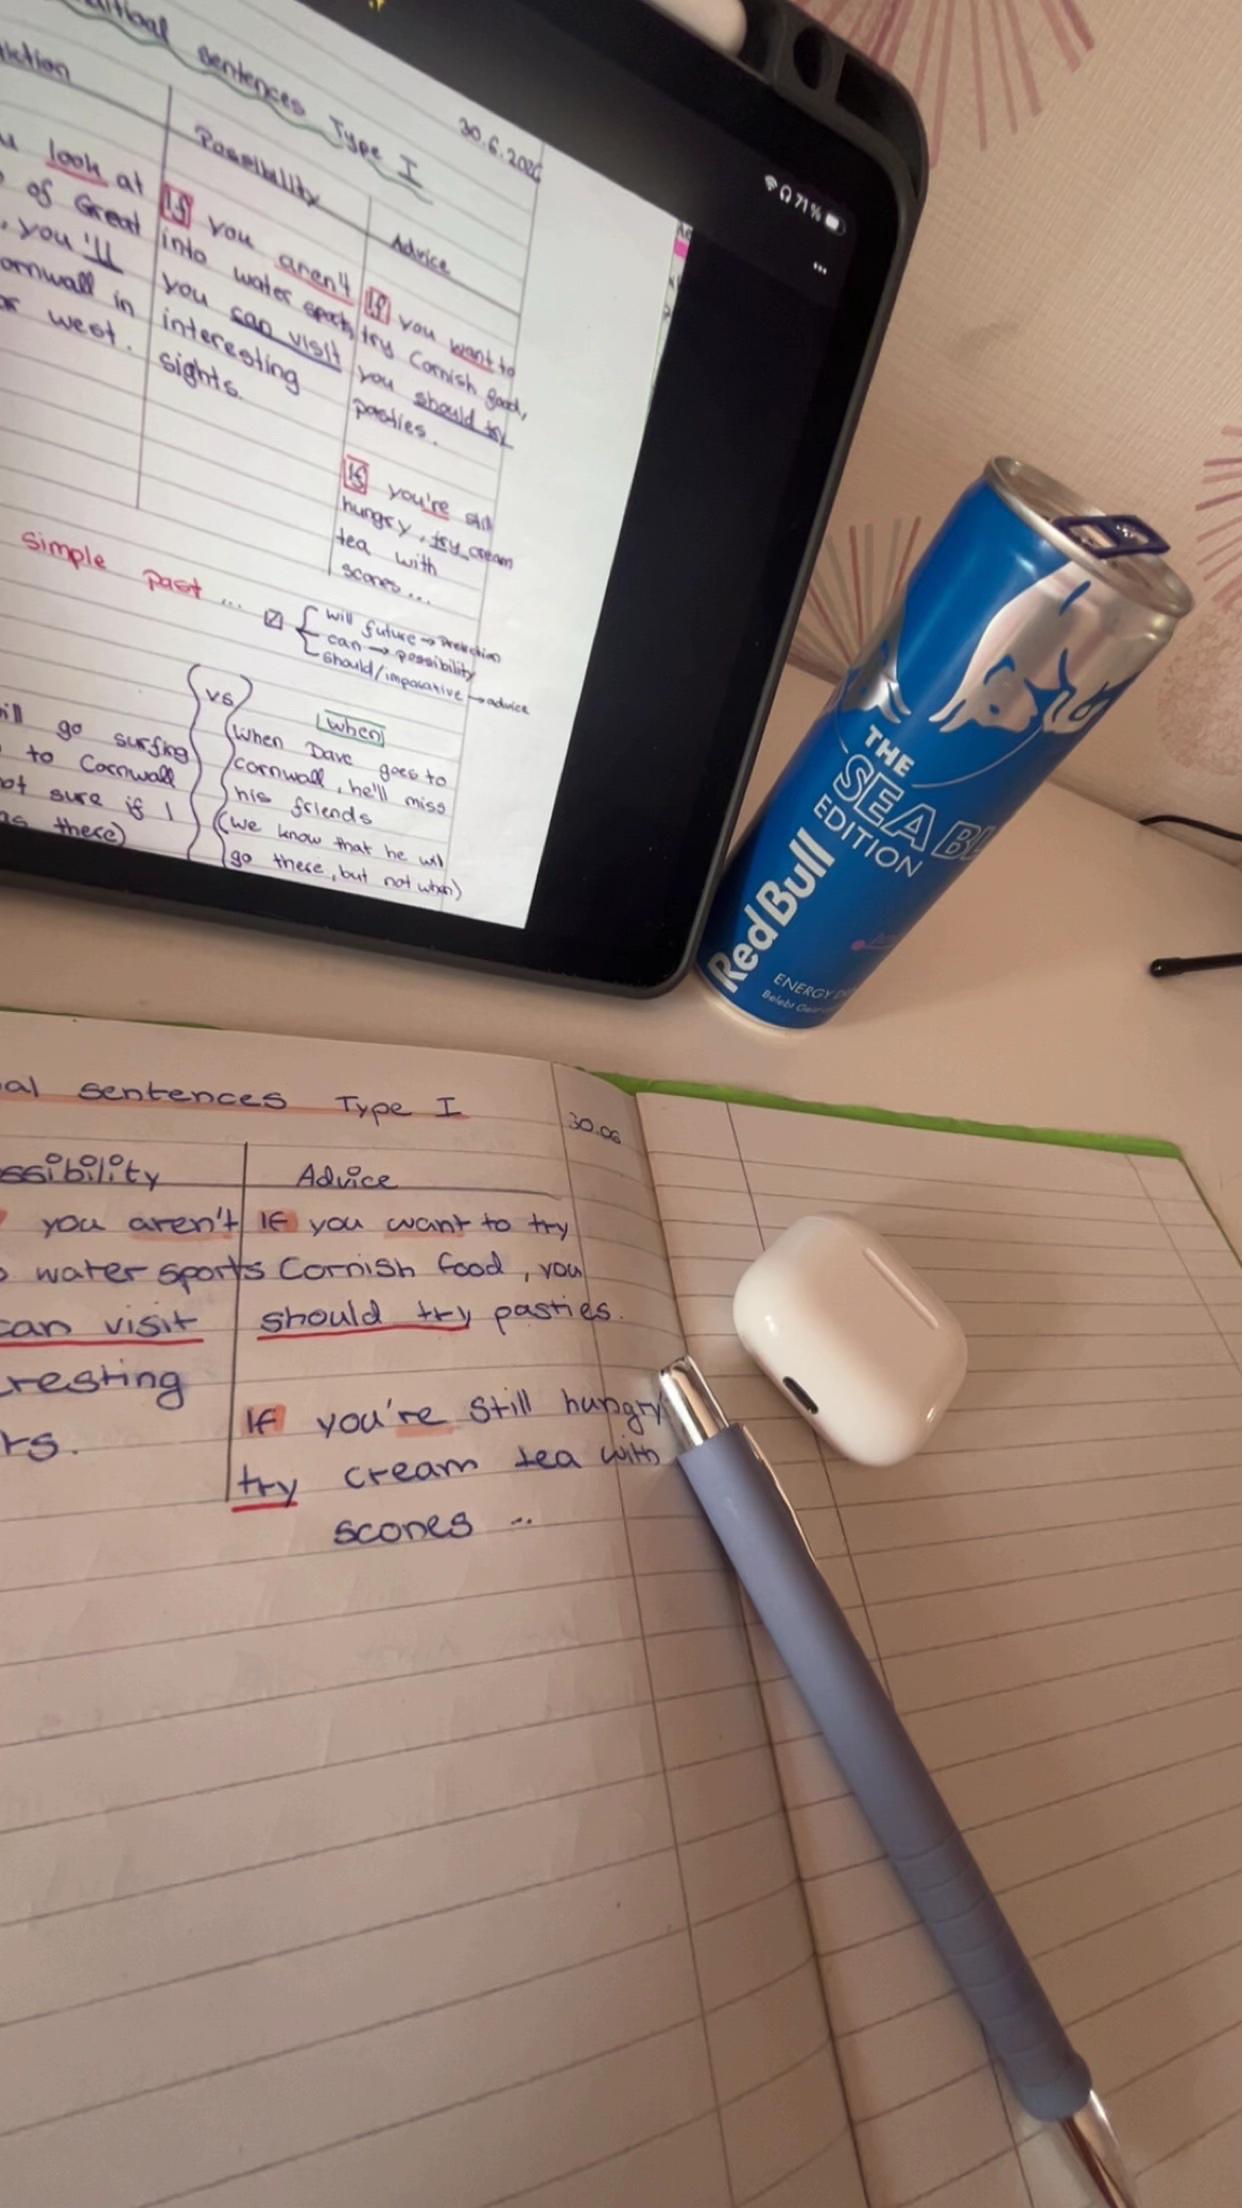 Sentences Type I
30.6.2026
Possibility
Advice
look at
of Great
, you'll
in
west.
If you aren't
into water sports,
you can visit
interesting
sights.
If you want to
try Cornish food,
you should try
pasties.
If you're still
hungry, try cream
tea with
scones...
Simple past ...
will future → Prediction
can → possibility
should/imperative → advice
vs
go surfing
to Cornwall
not sure if I
there)
when
When Dave goes to
Cornwall, he'll miss
his friends
(we know that he will
go there, but not when)
71%
THE
SEA BL
EDITION
RedBull
ENERGY
Belebt
al sentences Type I
30.06
ssibility
you aren't
water sports
can visit
resting
rs.
Advice
If you want to try
Cornish food, you
should try pasties.
If you're still hungry
try cream tea with
scones ...